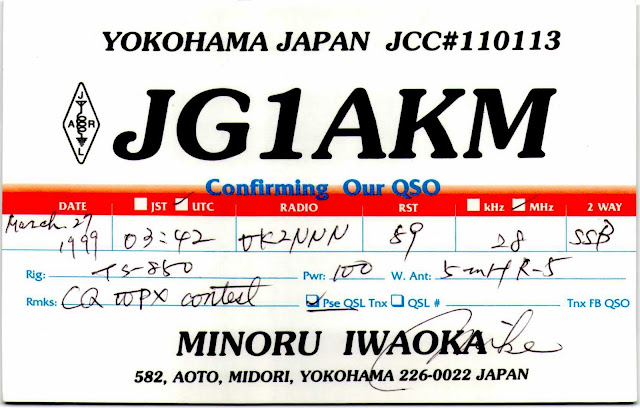 YOKOHAMA JAPAN JCC#110113
J
A R
L
JG1AKM
Confirming Our QSO
DATE JST UTC RADIO RST kHz MHz 2 WAY
March 27 1999 03:42 59 28 SSB
Rig: TS-850 Pwr: 100 W. Ant: 5mH R-5
Rmks: CQ WPX contest Pse QSL Tnx QSL # Tnx FB QSO
MINORU IWAOKA Mike
582, AOTO, MIDORI, YOKOHAMA 226-0022 JAPAN